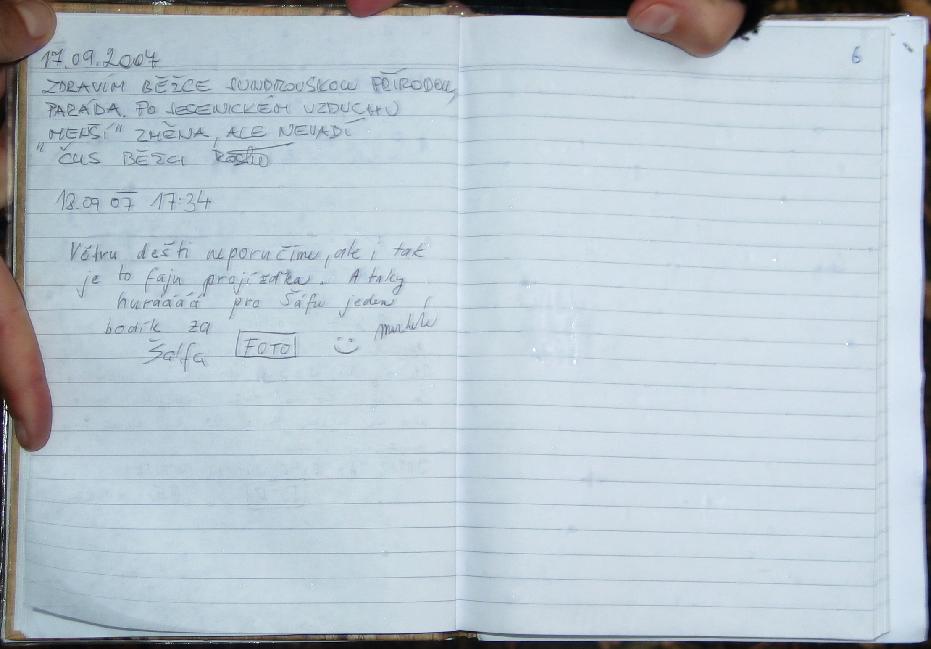 17.09.2007
ZDRAVÍM BĚŽCE ŠUNDROVSKOU PŘÍRODOU,
PARÁDA. PO JESENICKÉM VZDUCHU
"MENŠÍ" ZMĚNA, ALE NEVADÍ
ČUS BĚŽCI
18.09 07 17:34
Větru dešti neporučíme, ale i tak
je to fajn projížďka. A taky
huráááá pro Šáfu jeden
bodík za
Šalfa FOTO
6